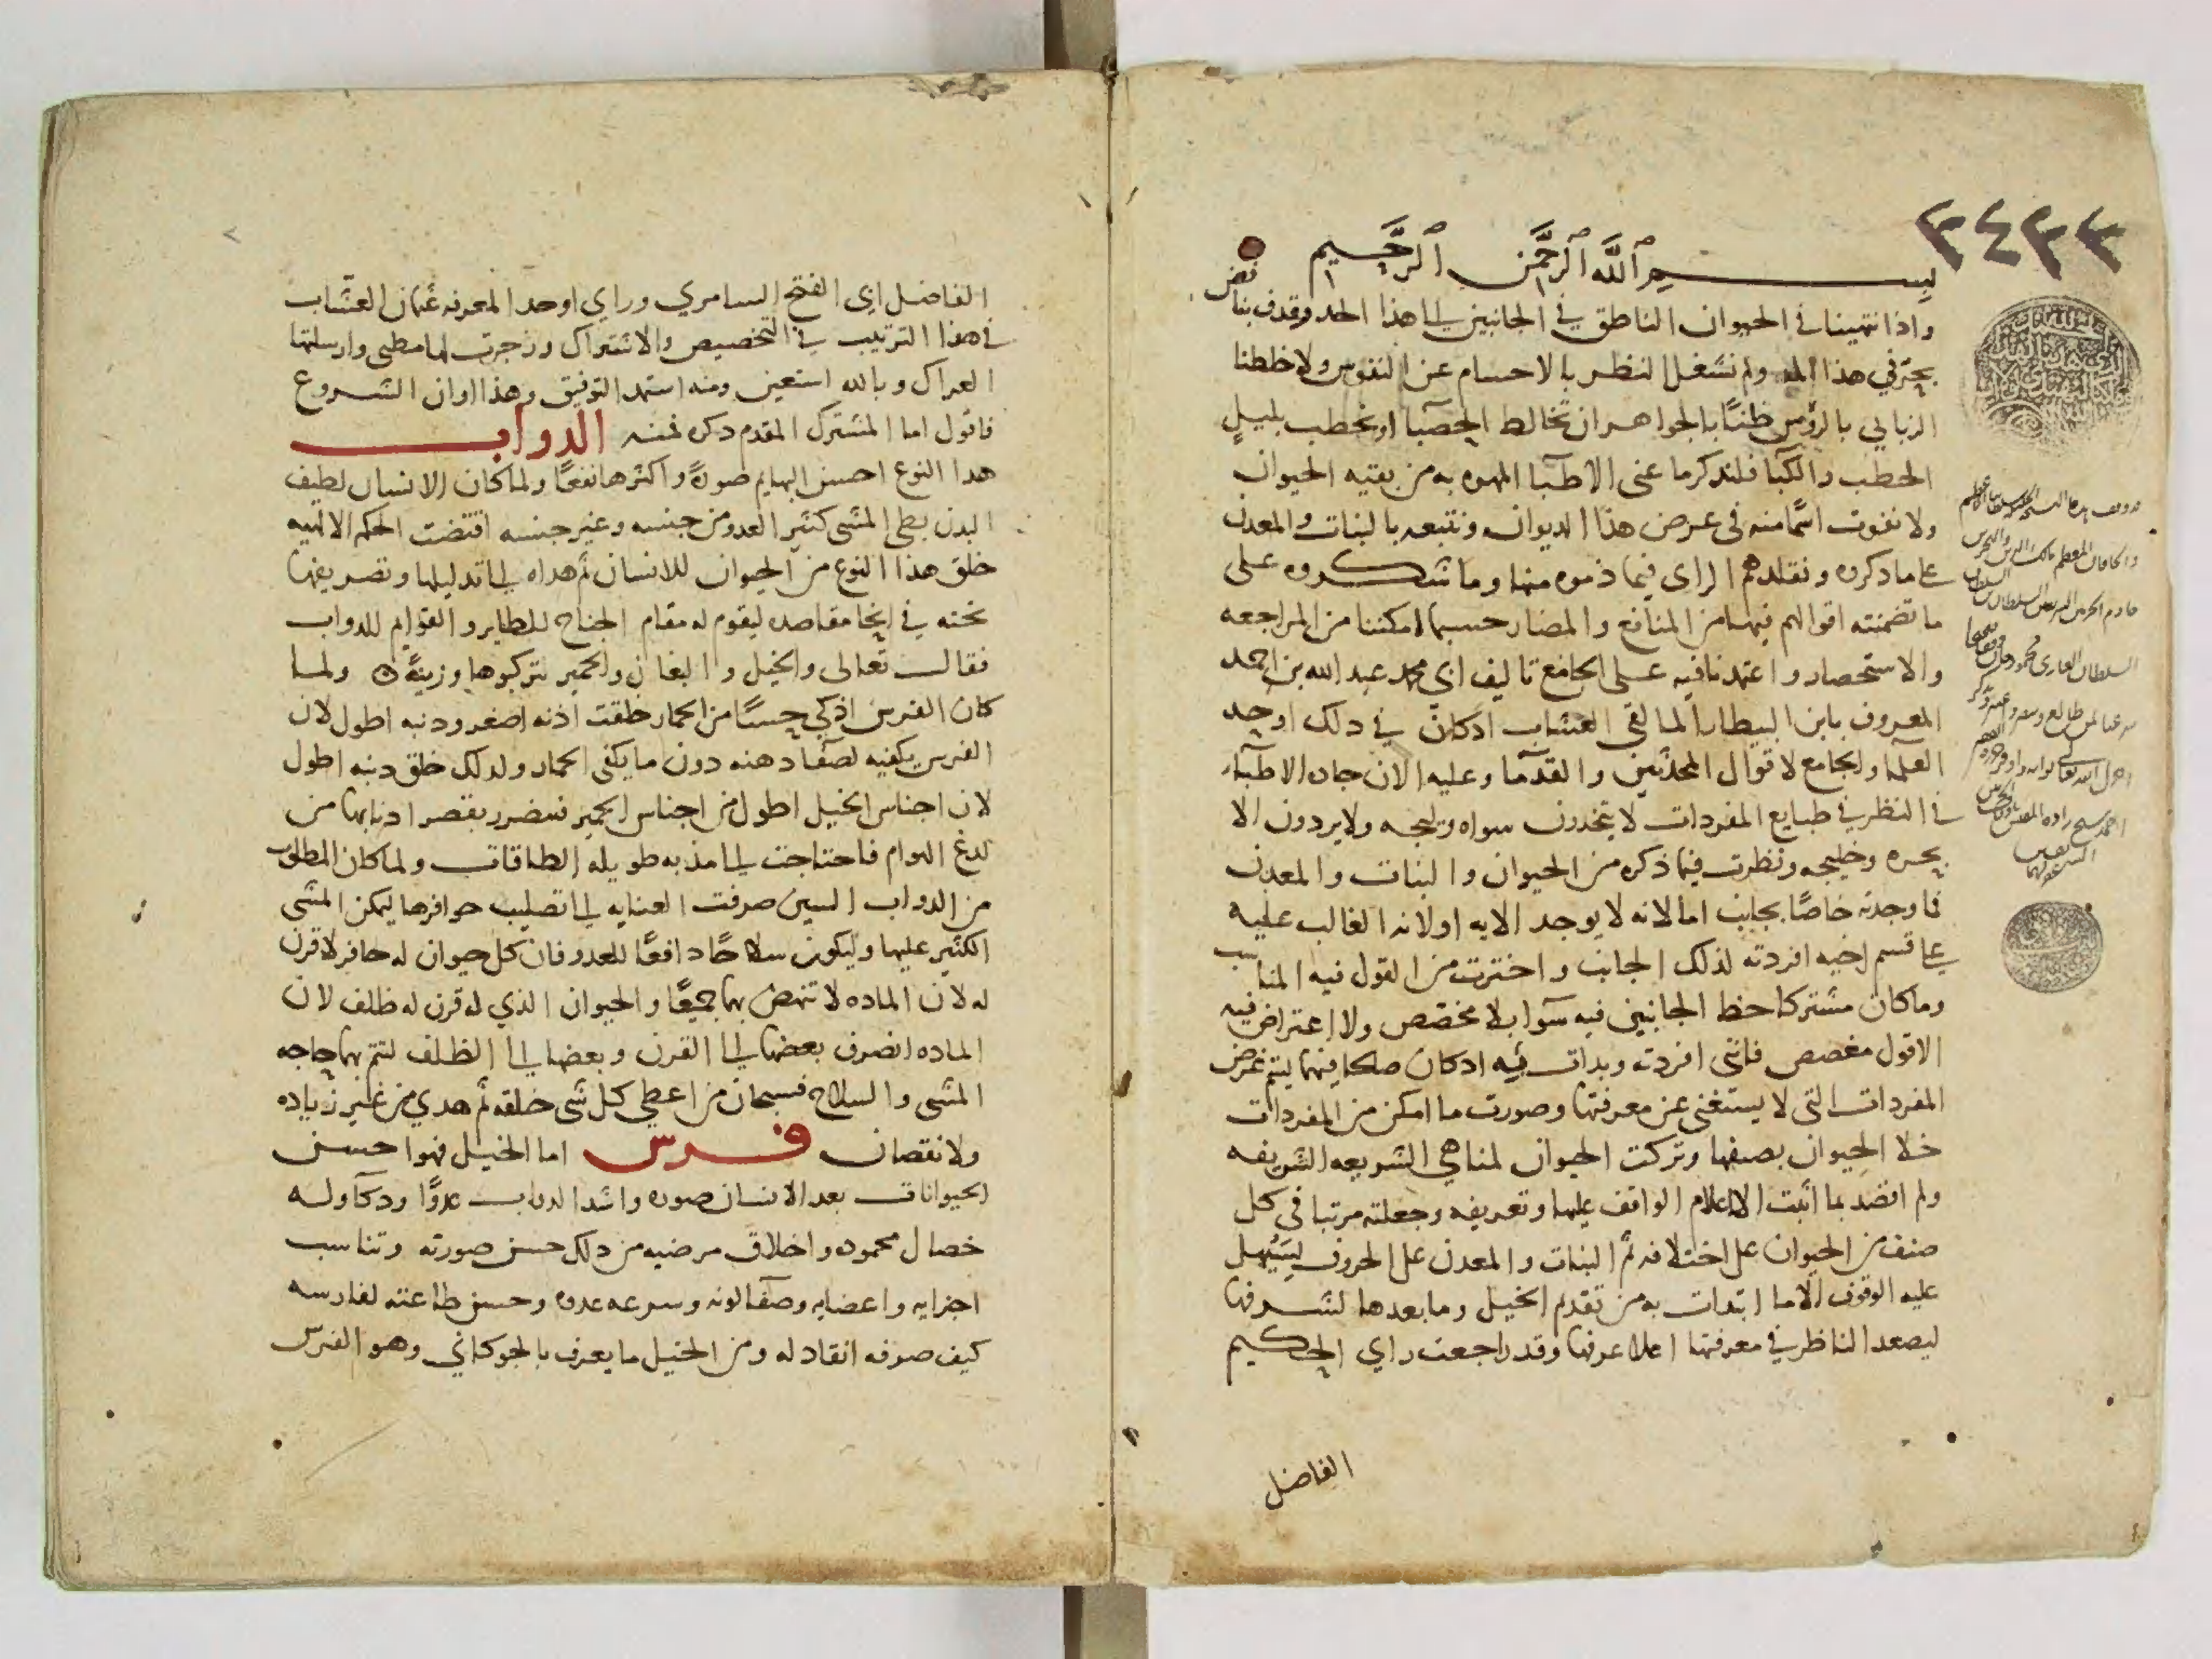 ٣٤٣٣
بسم الله الرحمن الرحيم
واذا نتهينا في الحيوان الناطق في الجانبين الى هذا الحد وقدف بنا فيض
بحره في هذا المد ولم نشغل النظر بالاجسام عن النفوس ولا خلطنا
الزباني بالرؤس ظنًا بالجواهر ان تخالط الحصبا او نحطب بلميل
الحطب والكبا فلنذكر ما عنى الاطبا المهره به من بقيه الحيوان
ولا نفوت اسما منه في عرض هذا الديوان ونتبعه بالنبات والمعدن
على ما ذكروه ونقلدهم الراي فيما ذموه منها وما شكروه على
ما تضمنته اقوالهم فيها من المنافع والمضار حسبما امكننا من المراجعه
والاستحضار واعتمدنا فيه على الجامع تاليف ابي محمد عبد الله بن احمد
المعروف بابن البيطار المالقي العشاب اذ كان في ذلك اوحد
العلما والجامع لاقوال المحدثين والقدما وعليه الان جان الاطبا
في النظر في طبايع المفردات لا يتخذون سواه وليجه ولا يردون الا
بحره وخليجه ونظرت فيما ذكره من الحيوان والنبات والمعدن
فاوجدته خاصًا بجانب اما لانه لا يوجد الا به او لانه الغالب عليه
على قسم اخيه افردته لذلك الجانب واخترت من القول فيه المناسب
وما كان مشتركا حظ الجانبين فيه سوآ بلا مخصص ولا اعتراض فيه
الا قول مغصص فانني افردته وبدات فيه اذ كان صلحا فيهما ليتم غرض
المفردات التي لا يستغنى عن معرفتها وصورت ما امكن من المفردات
خلا الحيوان بصفها وتركت الحيوان لمناهي الشريعه الشريفه
ولم اقصد بما اثبت الا اعلام الواقف عليها وتعريفه وجعلته مرتبا في كل
صنف من الحيوان على اختلافه ثم النبات والمعدن على الحروف ليسهل
عليه الوقوف الا ما ابتدات به من تقدم الخيل وما بعدها لشرفها
ليصعد الناظر في معرفتها اعلا غرفها وقد راجعت راي الحكيم
الفاضل
الفاضل ابي الفتح السامري وراي اوحد المعرفه غمان العشاب
في هذا الترتيب في التخصيص والاشتراك وزجرت لها مطيى وارسلتها
العراك وبالله استعين ومنه استمد التوفيق وهذا اوان الشروع
فاقول اما المشترك المقدم دكره فمنه الدواب
هدا النوع احسن البهايم صورةً واكثرها نفعًا ولما كان الانسان لطيف
البدن بطى المشى كثير العدو من جنسه وغير جنسه اقتضت الحكم الالهيه
خلق هذا النوع من الحيوان للانسان ثم هداه الى تدليلها وتصريفها
تحته في انحا مقاصده ليقوم له مقام الجناح للطاير والقوايم للدواب
فقال تعالى والخيل والبغال والحمير لتركبوها وزينةً ولما
كان الفرس اذكى حسًا من الحمار خلقت اذنه اصغر ودنبه اطول لان
الفرس يكفيه لصفا دهنه دون ما يكفى الحمار ولدلك خلق دنبه اطول
لان اجناس الخيل اطول من اجناس الحمير فتضرر بقصر ادنابها من
لدغ الهوام فاحتاجت الى مذبه طويله الطاقات ولما كان المطلوب
من الدواب السير صرفت العنايه الى تصليب حوافرها ليمكن المشى
الكثير عليها وليكون سلاحًا دافعًا للعدو فان كل حيوان له حافر لا قرن
له لان الماده لا تنهض بهما جميعًا والحيوان الذي له قرن له ظلف لان
الماده انصرف بعضها الى القرن وبعضها الى الظلف لتتم بها حاجه
المشى والسلاح فسبحان من اعطى كل شى خلقه ثم هدي من غير زياده
ولا نقصان فرس اما الخيل فهوا حسن
الحيوانات بعد الانسان صوره واشد الدواب عدوًا ودكآ وله
خصال محموده واخلاق مرضيه من دلك حسن صورته وتناسب
اجزايه واعضايه وصفآ لونه وسرعه عدوه وحسن طاعته لفارسه
كيف صرفه انقاد له ومن الخيل ما يعرف بالجوكاني وهو الفرس